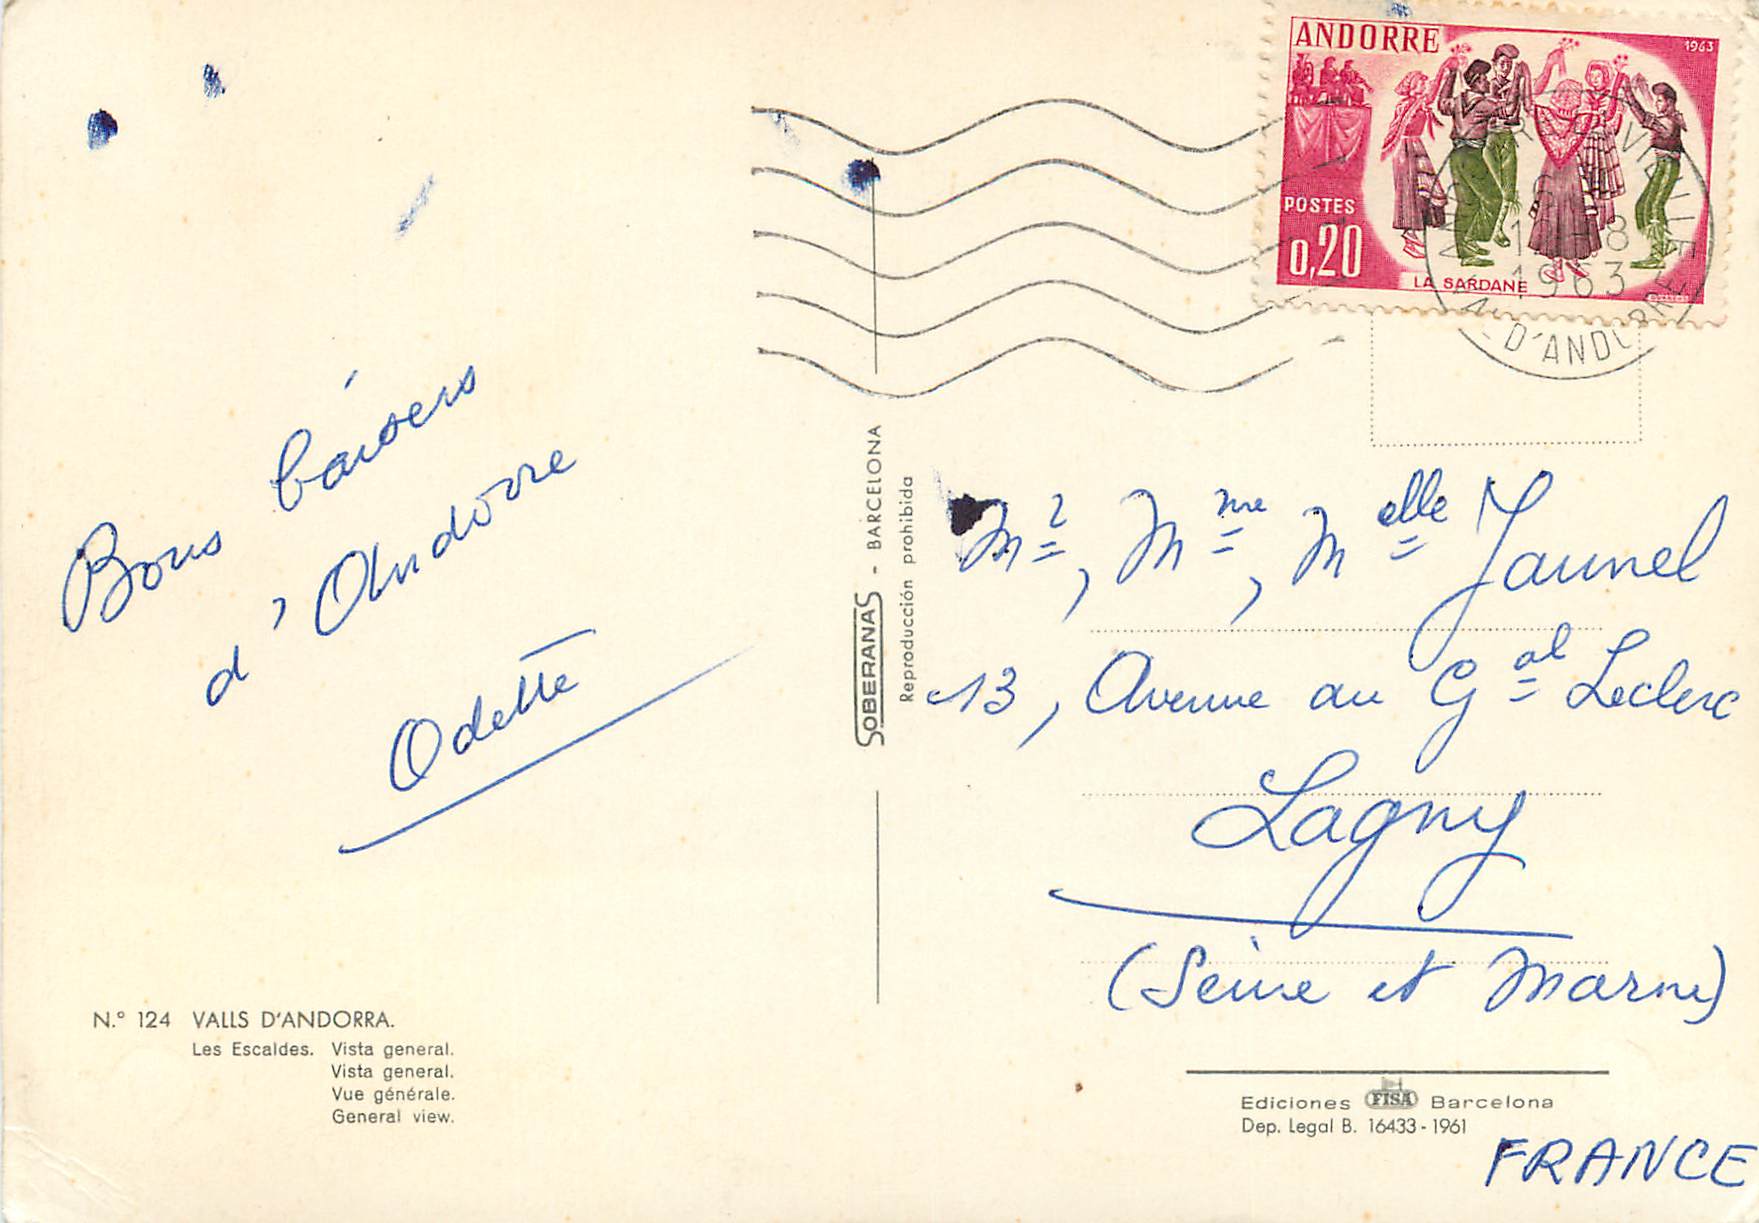 Bons baisers
d'Andorre
Odette
N.° 124 VALLS D'ANDORRA.
Les Escaldes. Vista general.
Vista general.
Vue générale.
General view.
SOBERANAS - BARCELONA
Reproducción prohibida
ANDORRE
1963
POSTES
0,20
LA SARDANE
1963
D'ANDORRE
Mr, Mme, Melle Jaunel
13, Avenue au Gal Leclerc
Lagny
(Seine et Marne)
Ediciones FISA Barcelona
Dep. Legal B. 16433-1961
FRANCE